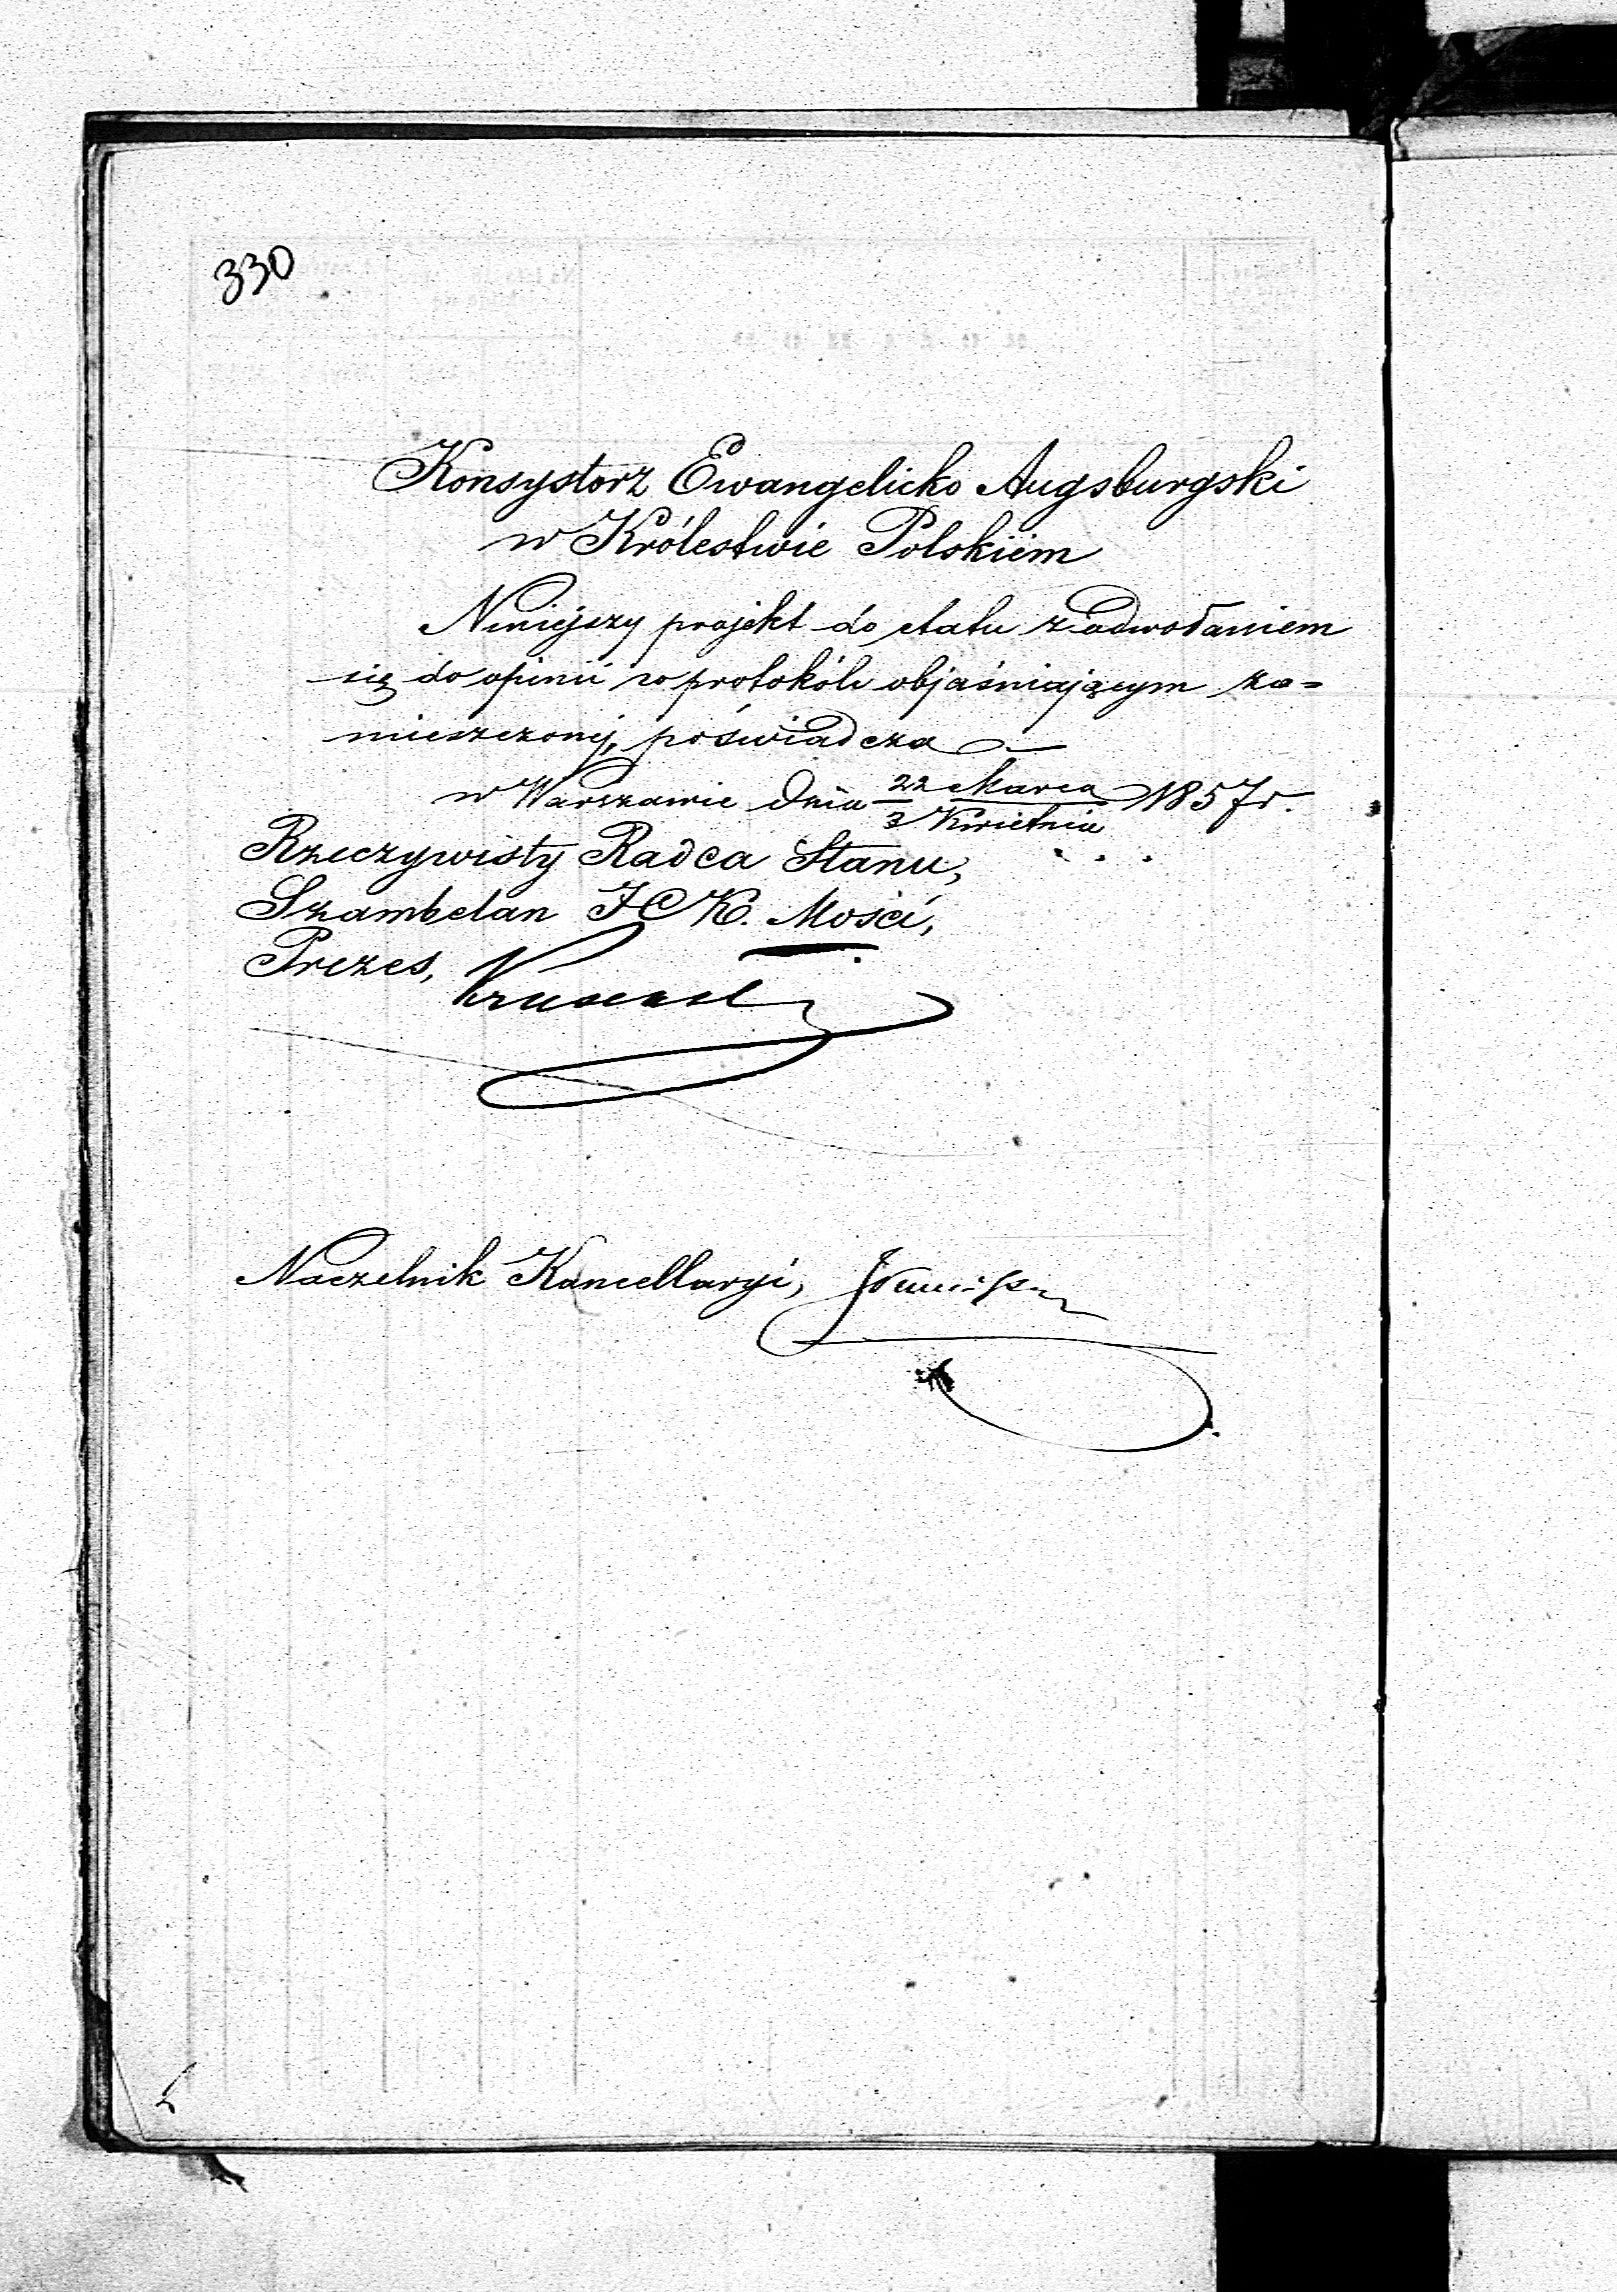 330
Konsystorz Ewangelicko Augsburgski
w Królestwie Polskiém
Niniejszy projekt do etatu z odwołaniem
się do opinii w protokóle objaśniającym za=
mieszczonéj, poświadcza
w Warszawie dnia 22 Marca / 3 Kwietnia 1857 r.
Rzeczywisty Radca Stanu,
Szambelan J C K. Mości,
Prezes,
Naczelnik Kancellaryi,